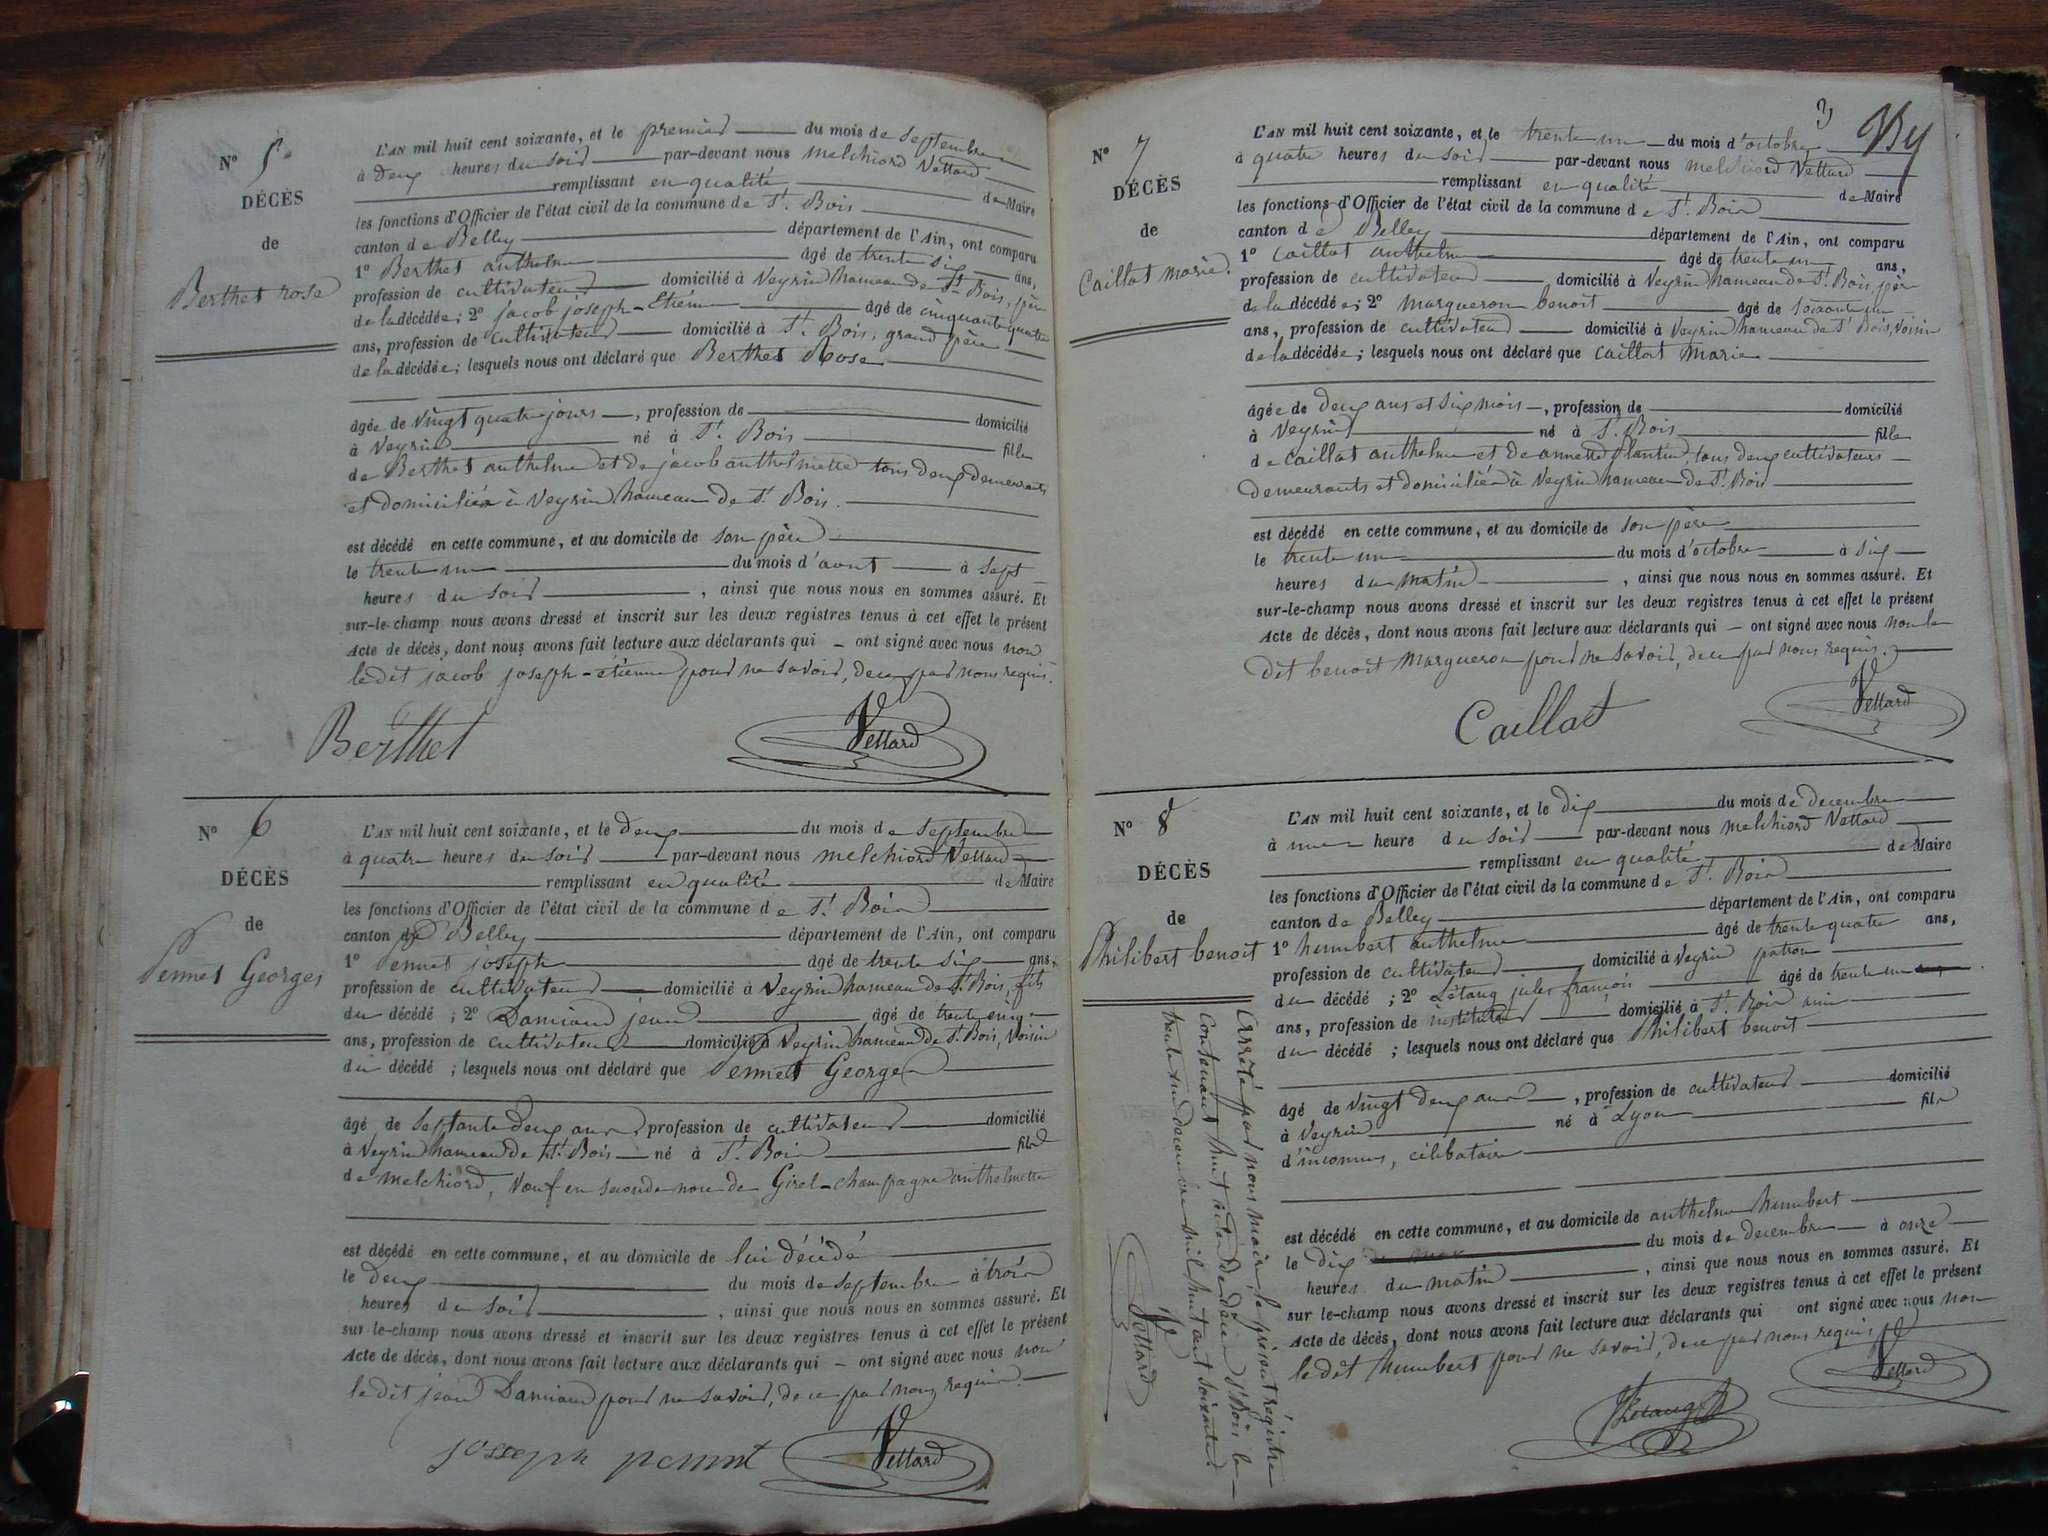 N° 5
DÉCÈS
de
Berthet rose
L'AN mil huit cent soixante, et le premier du mois de septembre
à deux heures du soir par-devant nous melchiord Vettard
remplissant en qualité de Maire
les fonctions d'Officier de l'état civil de la commune de St. Bois
canton de Belley département de l'Ain, ont comparu
1° Berthet anthelme âgé de trente six ans,
profession de cultivateur domicilié à Veyrin hameau de St Bois, père
de la décédée; 2° jacob joseph-Etienne âgé de cinquante quatre
ans, profession de cultivateur domicilié à St. Bois, grand père
de la décédée; lesquels nous ont déclaré que Berthet Rose
âgée de vingt quatre jours, profession de domicilié
à Veyrin né à St. Bois fille
de Berthet anthelme et de jacob anthelmette tous deux demeurants
et domiciliés à Veyrin hameau de St. Bois.
est décédé en cette commune, et au domicile de son père
le trente un du mois d'aout à sept
heures du soir, ainsi que nous nous en sommes assuré. Et
sur-le-champ nous avons dressé et inscrit sur les deux registres tenus à cet effet le présent
Acte de décès, dont nous avons fait lecture aux déclarants qui – ont signé avec nous non
le dit jacob joseph-étienne pour ne savoir, de ce par nous requis.
Berthet Vettard
N° 6
DÉCÈS
de
Pennet Georges
L'AN mil huit cent soixante, et le deux du mois de septembre
à quatre heures du soir par-devant nous melchiord Vettard
remplissant en qualité de Maire
les fonctions d'Officier de l'état civil de la commune de St. Bois
canton de Belley département de l'Ain, ont comparu
1° Pennet joseph âgé de trente six ans,
profession de cultivateur domicilié à Veyrin hameau de St Bois, fils
du décédé; 2° Damiand jean âgé de trente cinq
ans, profession de cultivateur domicilié à Veyrin hameau de St. Bois, Voisin
du décédé; lesquels nous ont déclaré que Pennet Georges
âgé de septante deux ans profession de cultivateur domicilié
à Veyrin hameau de St. Bois né à St. Bois fils
de melchiord, Veuf en seconde noce de Girel-champagne anthelmette
est décédé en cette commune, et au domicile de lui décédé
le deux du mois de septembre à trois
heures du soir, ainsi que nous nous en sommes assuré. Et
sur-le-champ nous avons dressé et inscrit sur les deux registres tenus à cet effet le présent
Acte de décès, dont nous avons fait lecture aux déclarants qui – ont signé avec nous non
le dit jean Damiand pour ne savoir, de ce par nous requis.
josseph penint Vettard
3
N° 7
DÉCÈS
de
Caillat marie.
L'AN mil huit cent soixante, et le trente un du mois d'octobre
à quatre heures du soir par-devant nous melchiord Vettard
remplissant en qualité de Maire
les fonctions d'Officier de l'état civil de la commune de St. Bois
canton de Belley département de l'Ain, ont comparu
1° Caillat anthelme âgé de trente un ans,
profession de cultivateur domicilié à Veyrin hameau de St. Bois, père
de la décédée; 2° Margueron benoit âgé de soixante un
ans, profession de cultivateur domicilié à Veyrin hameau de St Bois, Voisin
de la décédée; lesquels nous ont déclaré que Caillat Marie
âgée de deux ans et six mois, profession de domicilié
à Veyrin né à St. Bois fille
de Caillat anthelme et de annette Plantin, tous deux cultivateurs
demeurants et domiciliés à Veyrin hameau de St. Bois
est décédé en cette commune, et au domicile de son père
le trente un du mois d'octobre à six
heures du matin, ainsi que nous nous en sommes assuré. Et
sur-le-champ nous avons dressé et inscrit sur les deux registres tenus à cet effet le présent
Acte de décès, dont nous avons fait lecture aux déclarants qui – ont signé avec nous non le
dit benoit Margueron pour ne savoir, de ce par nous requis.
Caillat Vettard
N° 8
DÉCÈS
de
Philibert benoit
L'AN mil huit cent soixante, et le dix du mois de decembre
à une heure du soir par-devant nous melchiord Vettard
remplissant en qualité de Maire
les fonctions d'Officier de l'état civil de la commune de St. Bois
canton de Belley département de l'Ain, ont comparu
1° humbert anthelme âgé de trente quatre ans,
profession de cultivateur domicilié à Veyrin patron
du décédé; 2° Létang jules françois âgé de trente un
ans, profession de instituteur domicilié à St. Bois ami
du décédé; lesquels nous ont déclaré que Philibert benoit
âgé de vingt deux ans, profession de cultivateur domicilié
à Veyrin né à Lyon fils
d'inconnus, célibataire
est décédé en cette commune, et au domicile de anthelme humbert
le dix du mois de decembre à onze
heures du matin, ainsi que nous nous en sommes assuré. Et
sur le-champ nous avons dressé et inscrit sur les deux registres tenus à cet effet le présent
Acte de décès, dont nous avons fait lecture aux déclarants qui ont signé avec nous non
le dit humbert pour ne savoir, de ce par nous requis.
Vettard
Letang
Arrêté par nous maire le présent registre
contenant huit actes de décès d'Bois le
trente un decembre mil huit cent soixante.
Vettard